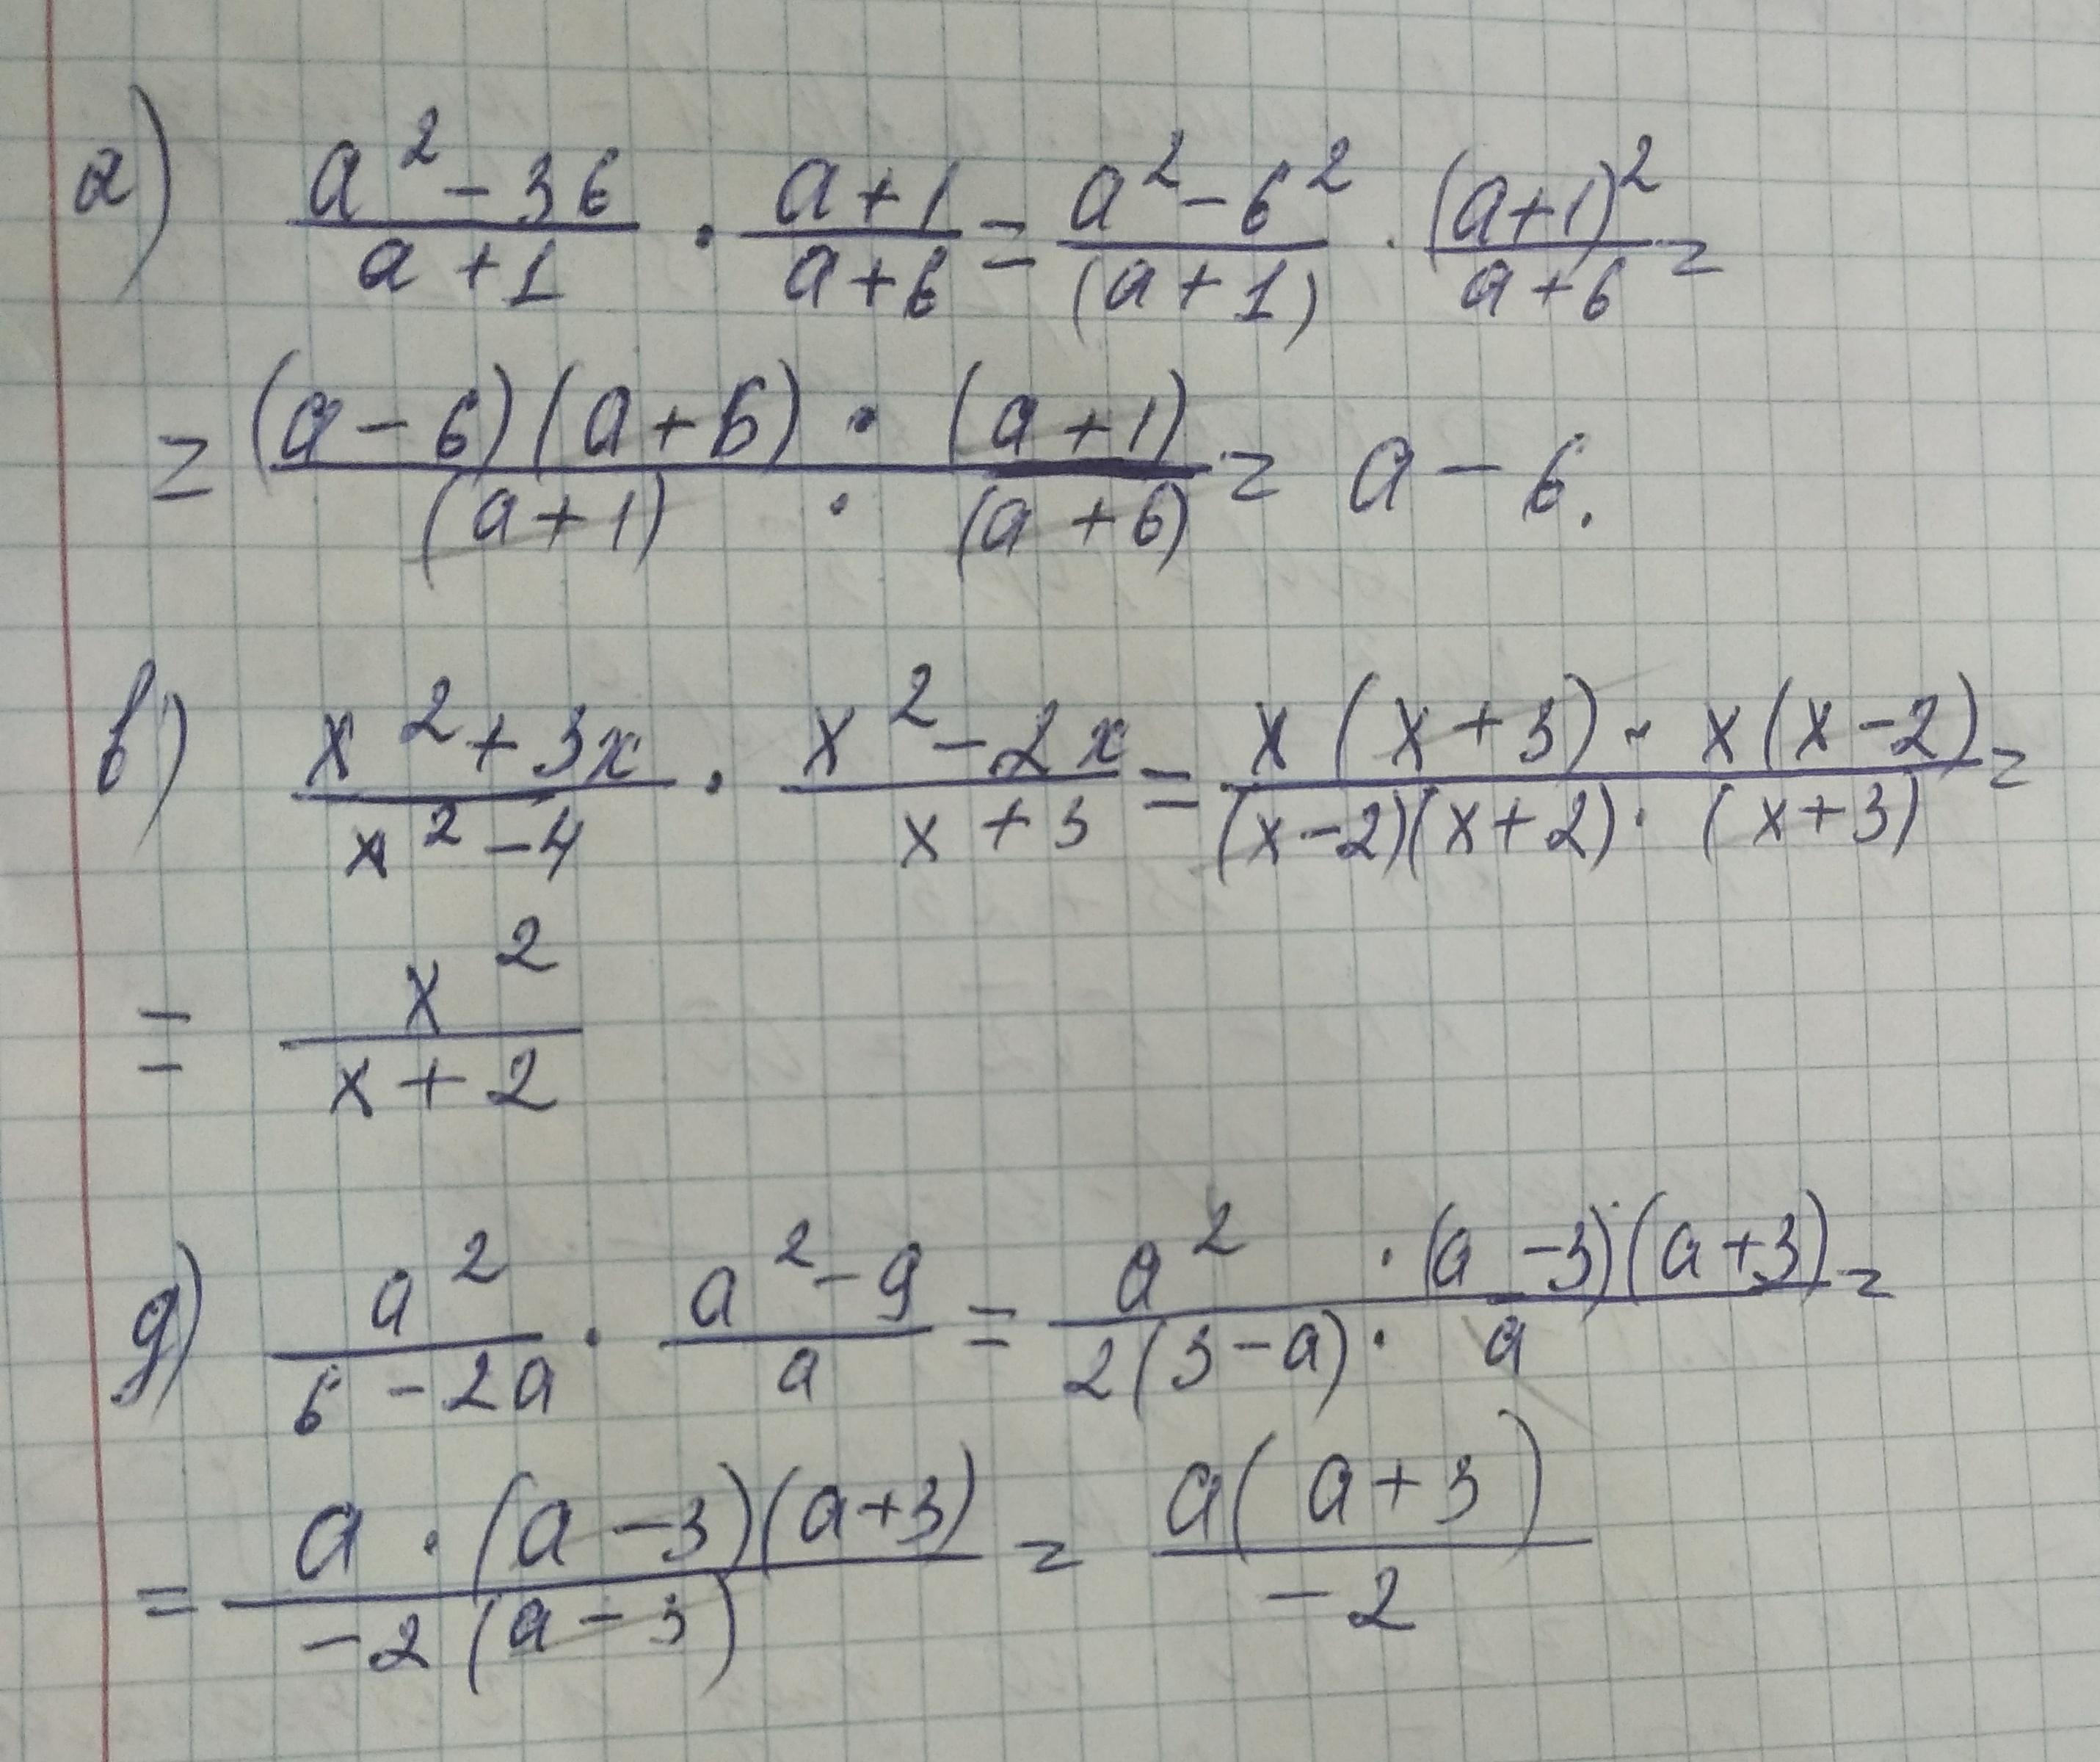 а) (a² - 36)/(a + 1) · (a + 1)/(a + 6) = (a² - 6²)/((a + 1)) · (a + 1)²/(a + 6) =
= ((a - 6)(a + 6) · (a + 1))/((a + 1) · (a + 6)) = a - 6.
в) (x² + 3x)/(x² - 4) · (x² - 2x)/(x + 3) = (x(x + 3) · x(x - 2))/((x - 2)(x + 2) · (x + 3)) =
= x²/(x + 2)
д) a²/(6 - 2a) · (a² - 9)/a = (a² · (a - 3)(a + 3))/(2(3 - a) · a) =
= (a · (a - 3)(a + 3))/(-2(a - 3)) = (a(a + 3))/(-2)